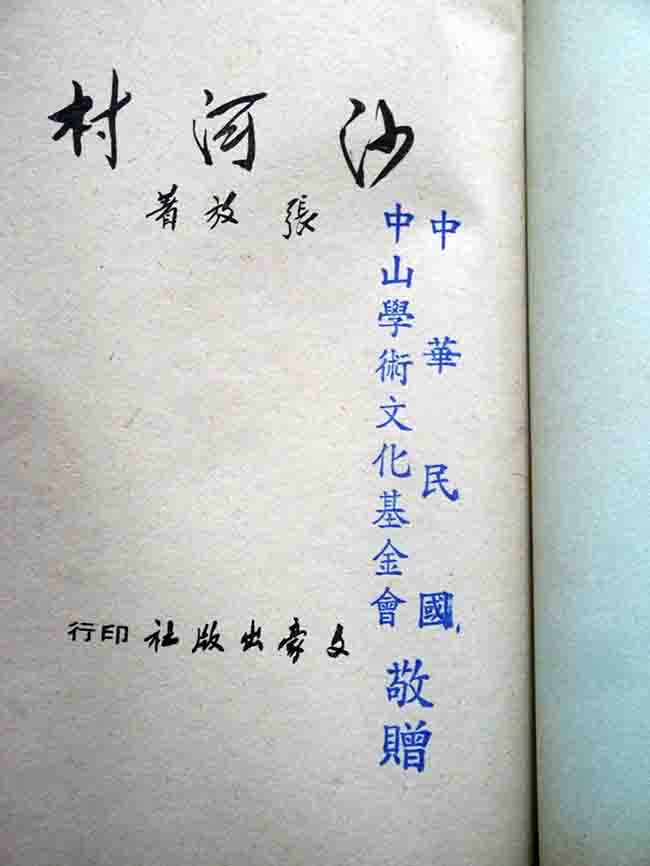 沙河村
張放著
中華民國
中山學術文化基金會
敬贈
文豪出版社印行